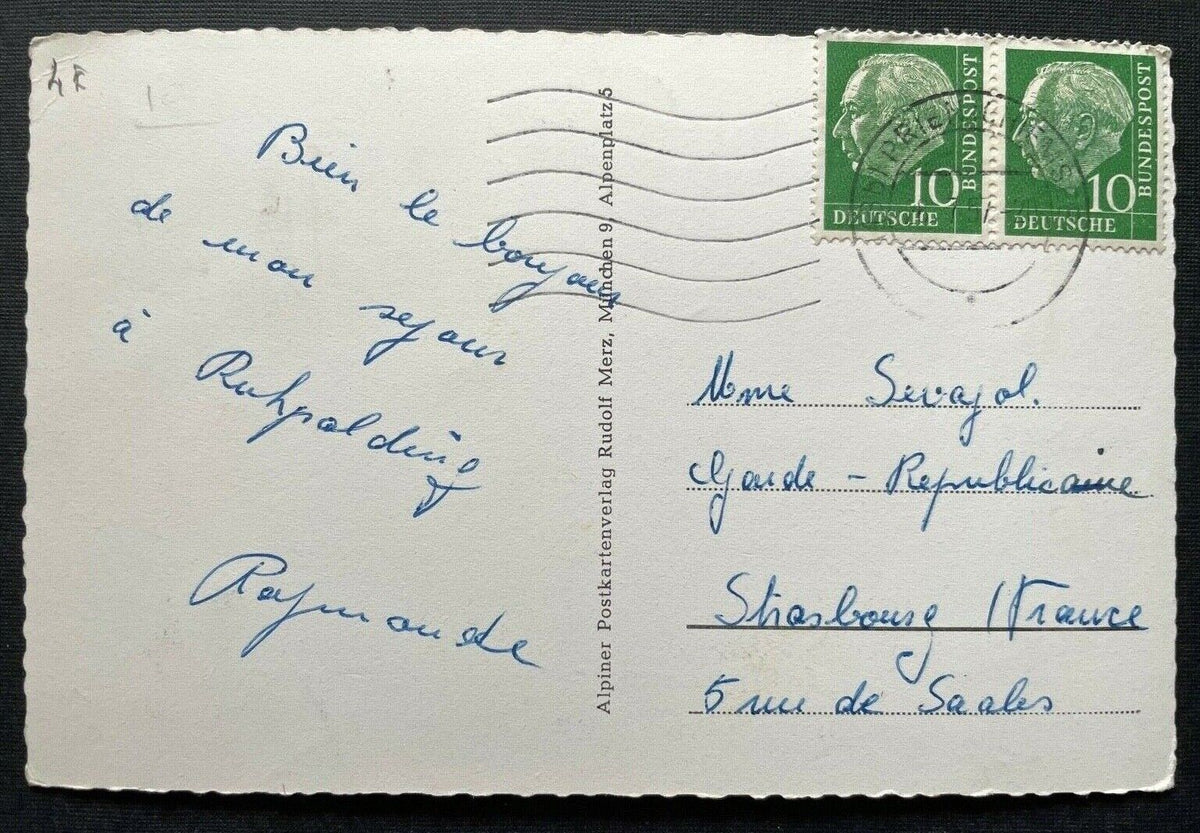 Bien le bonjour
de mon sejour
à Ruhpolding
Raymonde
Alpiner Postkartenverlag Rudolf Merz, München 9, Alpenplatz 5
10
DEUTSCHE
BUNDESPOST
10
DEUTSCHE
BUNDESPOST
Mme Sevajol.
Garde - Republicaine
Strasbourg / France
5 rue de Saales